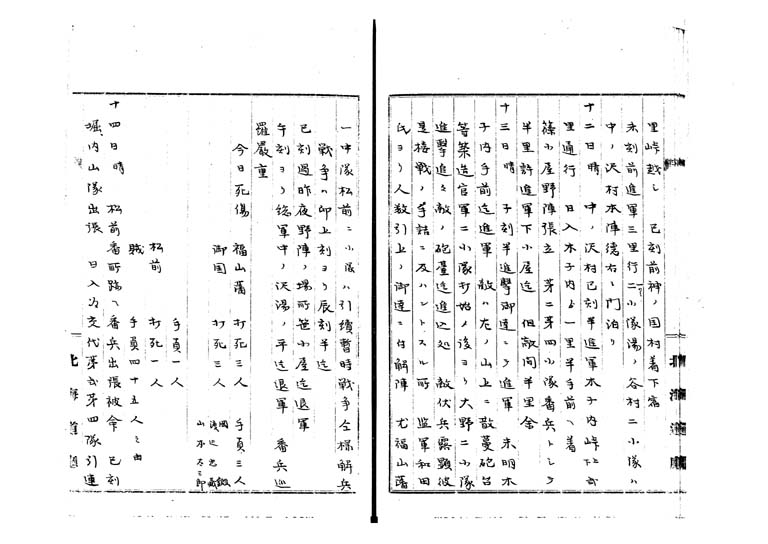 里峠越シ 已刻前神ノ国村着下宿
未刻前進軍三里行二小隊湯ノ谷村二小隊ハ
中ノ沢村本陣徳右ヱ門泊リ
十二日晴 中ノ沢村已刻半進軍木子内峠
里通行 日入木子内ヨ一里半手前ヘ着
篠小屋野陣張立 第二第四小隊番兵トシテ
半里許進軍下小屋迄 但敵間半里余
十三日晴 子刻半進撃御達ニテ進軍 未明木
子内手前迄進軍 敵ハ左ノ山上ニ散蔓砲台
等築造官軍二小隊打始ノ後ヨリ大野二小隊
進撃進テ敵ノ砲臺迄進込処 敵伏兵露顕彼
是接戦ノ手詰ニ及ハントスル所 監軍和田
氏ヨリ人数引上ノ御達ニ付解陣 尤福山藩
一中隊松前二小隊ハ引續暫時戦争全櫟解兵
戦争ハ卯上刻ヨリ辰刻半迄
已刻過昨夜野陣ノ場所笹小屋迄退軍
午刻ヨリ総軍中ノ沢湯ノ平迄退軍 番兵巡
羅嚴重
今日死傷 福山藩 打死三人 手負三人
御国 打死三人
山本太三郎
松前 打死一人 手負一人
賊 手負四十五人ト由
十四日晴 松前番所跡ヘ番兵出張被命 已刻
堀内山隊出張 日入ヨ交代第弐第四隊引連
北海道廳
北海道廳